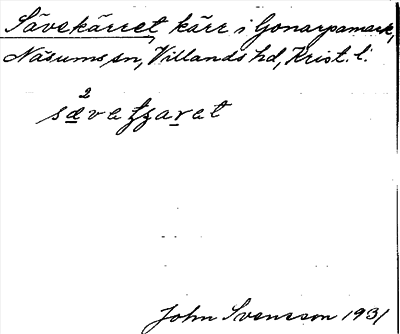 Sävekärret, kärr i Gonarpamark,
Näsums sn, Villands hd, Krist. l.
John Svensson 1931